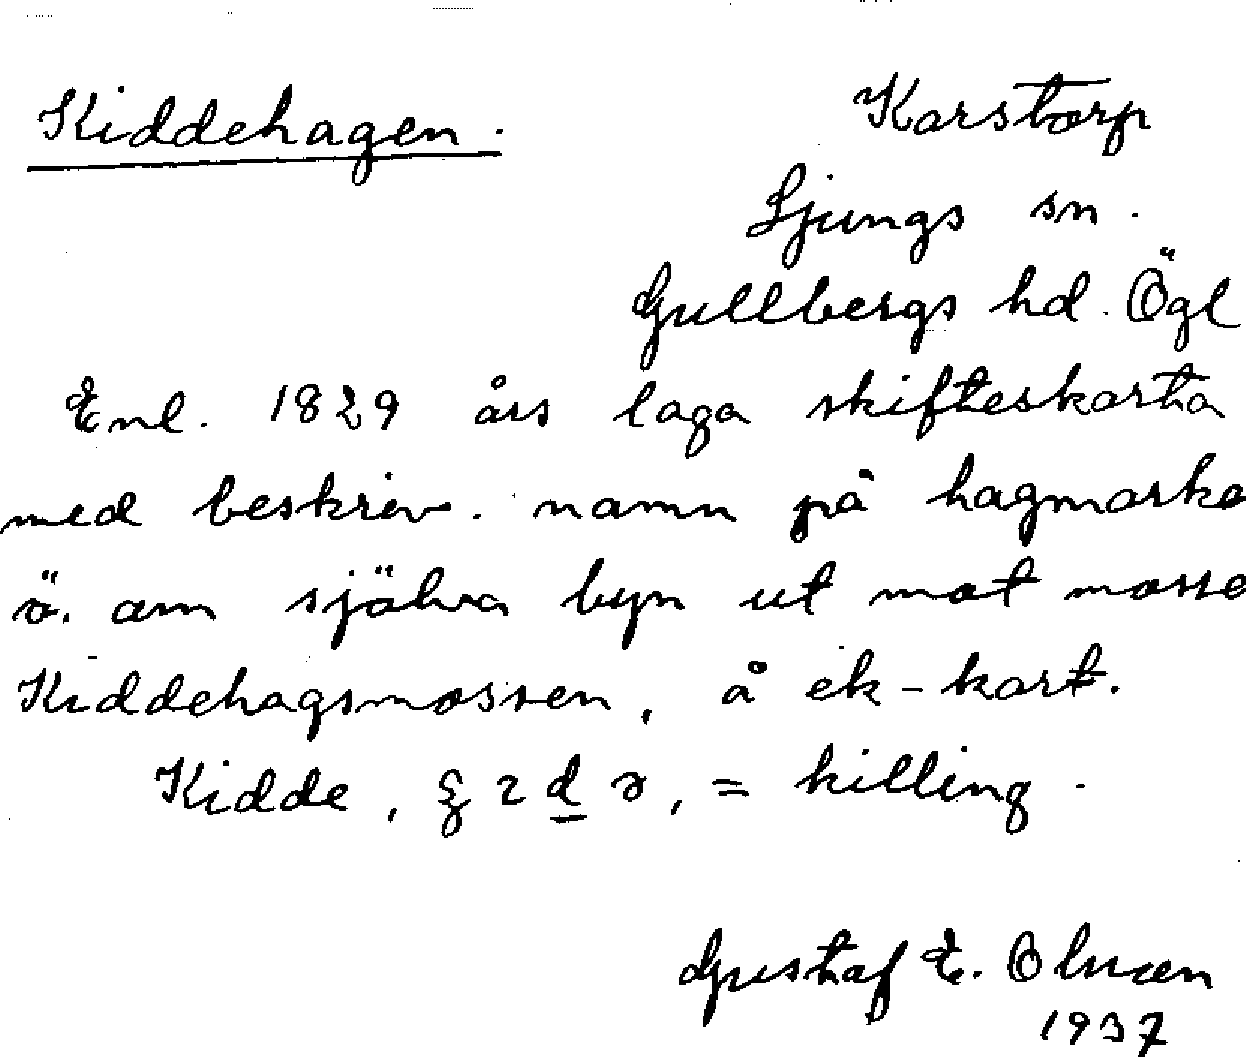 Kiddehagen.
Karstorp
Ljungs sn.
Gullbergs hd. Ögl
Enl. 1829 års laga skifteskarta
med beskriv. namn på hagmarka
ö. om själva byn ut mot mosse
Kiddehagsmossen, å ek-kart.
Kidde, = killing.
Gustaf E.
1937